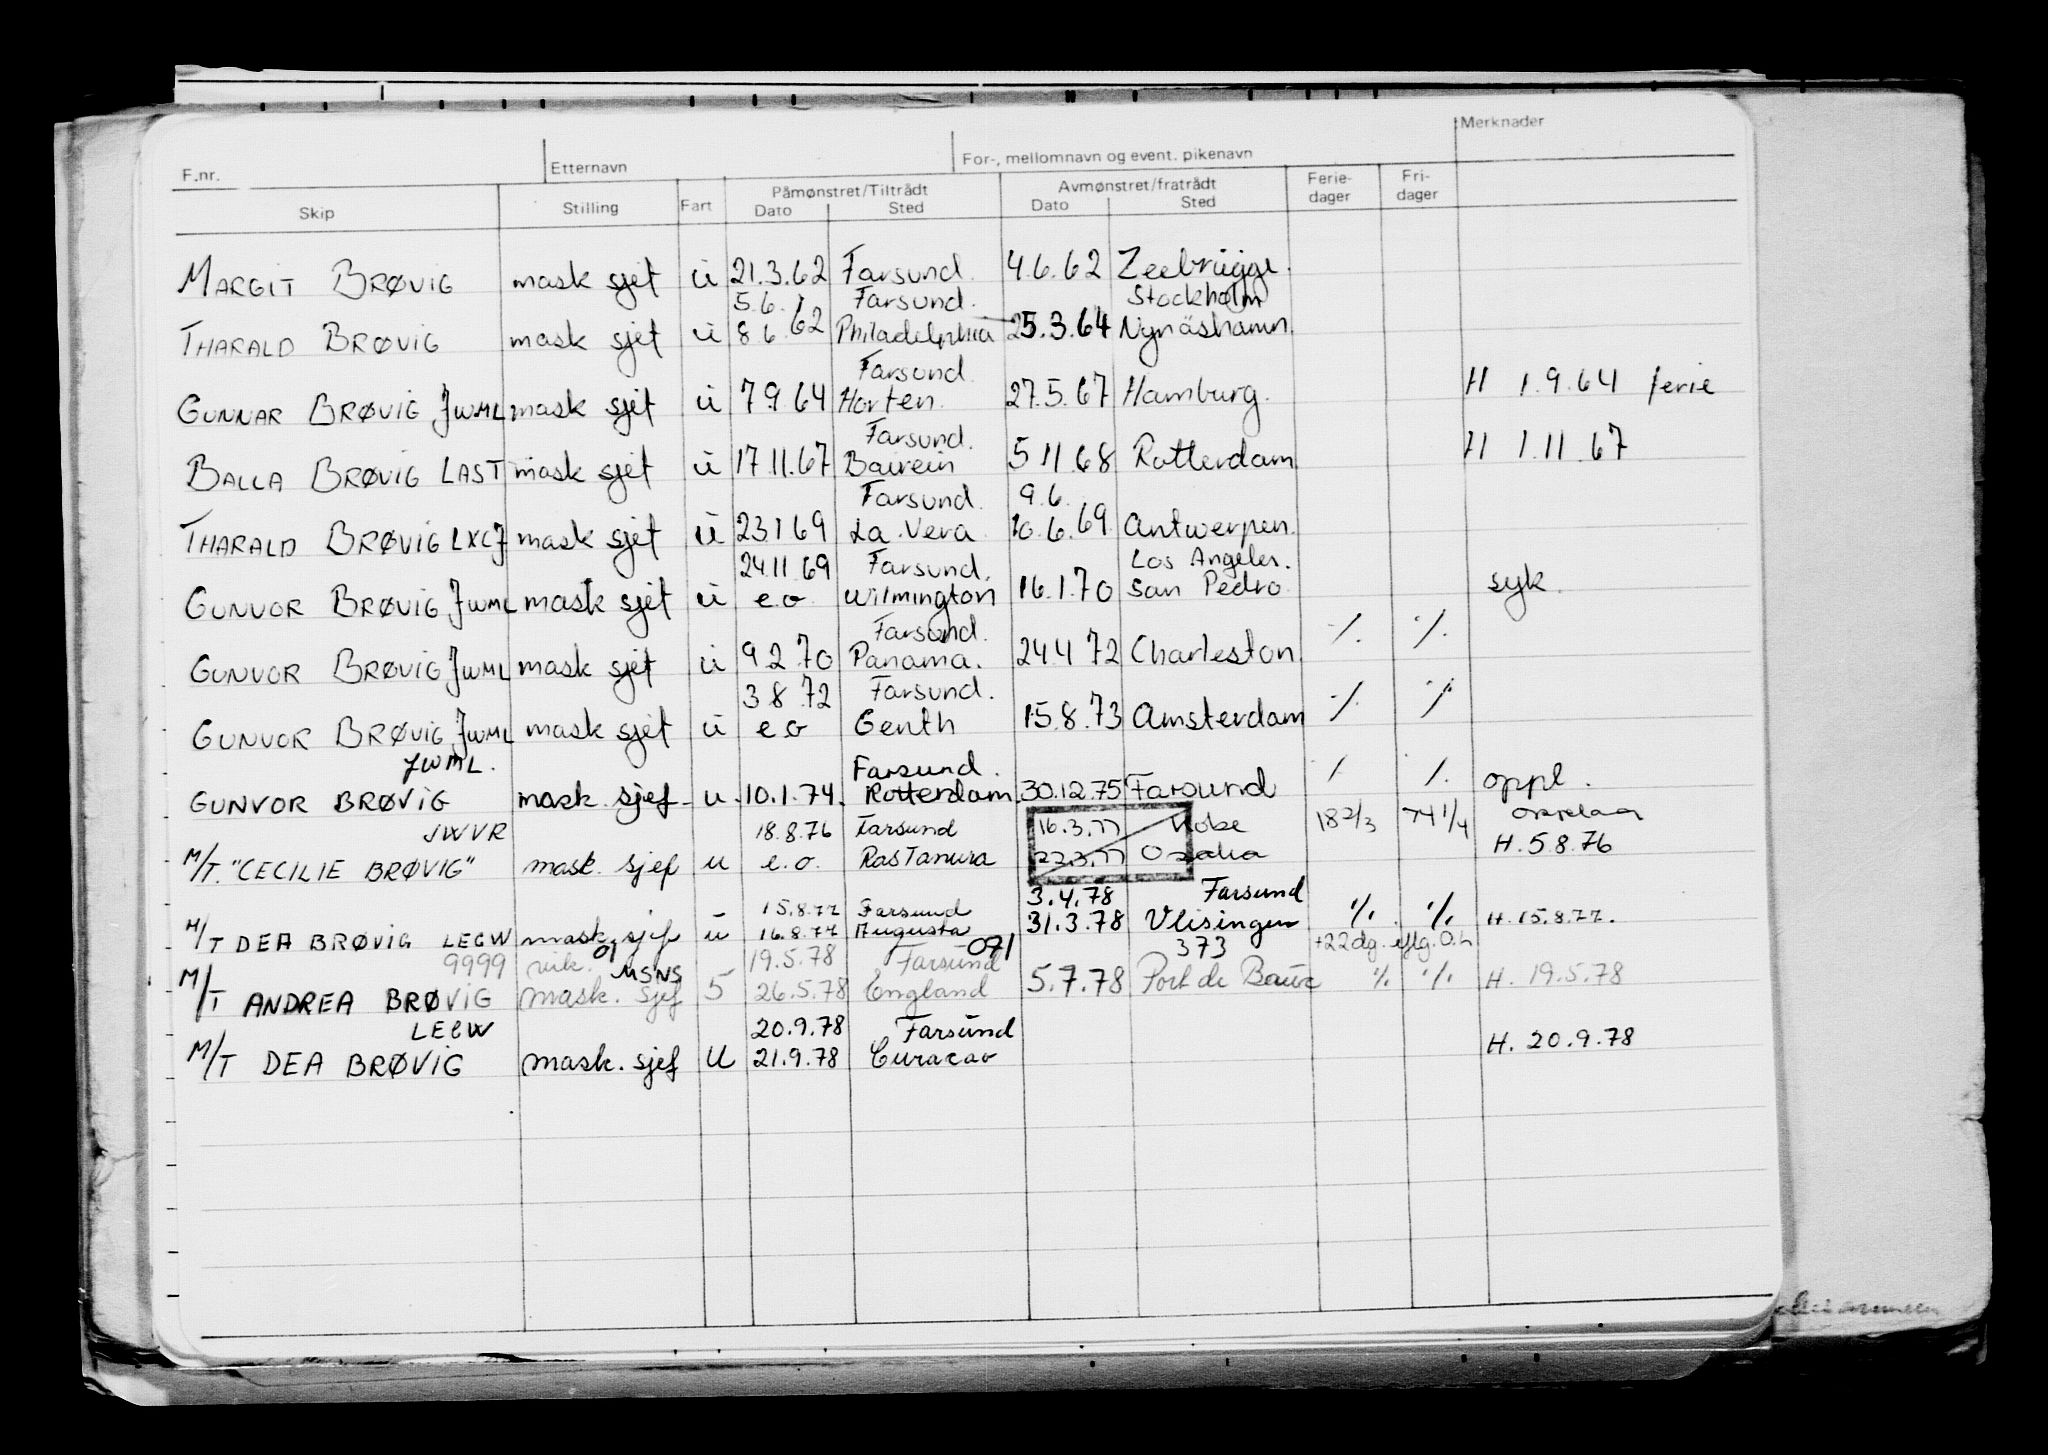 Merknader
F.nr. Etternavn For-, mellomnavn og event. pikenavn
Påmønstret/Tiltrådt Avmønstret/fratrådt Ferie- Fri-
Skip Stilling Fart Dato Sted Dato Sted dager dager
MARGIT BRØVIG mask sjef ü 21.3.62 Farsund. 4.6.62 Zeebrügge.
5.6. Farsund. Stockholm
THARALD BRØVIG mask sjef ü 8.6.62 Philadelphia 25.3.64 Nynäshamn.
Farsund
GUNNAR BRØVIG JWML mask sjef ü 7.9.64 Horten. 27.5.67 Hamburg. H 1.9.64 ferie
Farsund.
BALLA BRØVIG LAST mask sjef ü 17.11.67 Bairein 5 11 68 Rotterdam H 1.11.67
Farsund. 9.6.
THARALD BRØVIG LXCJ mask sjef ü 23 1 69 La Vera 10.6.69 Antwerpen.
24.11.69 Farsund. Los Angeles.
GUNVOR BRØVIG JWML mask sjef ü e.o. Wilmington 16.1.70 San Pedro syk.
Farsund. ./. ./.
GUNVOR BRØVIG JWML mask sjef ü 9 2 70 Panama. 24.4 72 Charleston
3 8 72 Farsund. ./. ./.
GUNVOR BRØVIG JWML mask sjef ü e.o Genth 15.8.73 Amsterdam
JWML. Farsund. ./. ./.
GUNVOR BRØVIG mask. sjef u 10.1.74. Rotterdam. 30.12.75 Farsund oppl.
JWVR 18.8.76 Farsund 16.3.77 Kobe 18 2/3 74 1/4
M/T. "CECILIE BRØVIG" mask. sjef u e.o. Ras Tanura 22.3.77 Osaka H. 5.8.76
3.4.78 Farsund
15.8.77 Farsund ./. ./.
M/T DEA BRØVIG LEGW mask. sjef ü 16.8.77 Augusta 31.3.78 Vlisingen H. 15.8.77.
9999 vik. 01 MSNS 19.5.78 Farsund 091 373 +22dg.
M/T ANDREA BRØVIG mask. sjef 5 26.5.78 England 5.7.78 Port de Bouc ./. ./. H. 19.5.78
LEGW 20.9.78 Farsund
M/T DEA BRØVIG mask. sjef U 21.9.78 Curacao H. 20.9.78